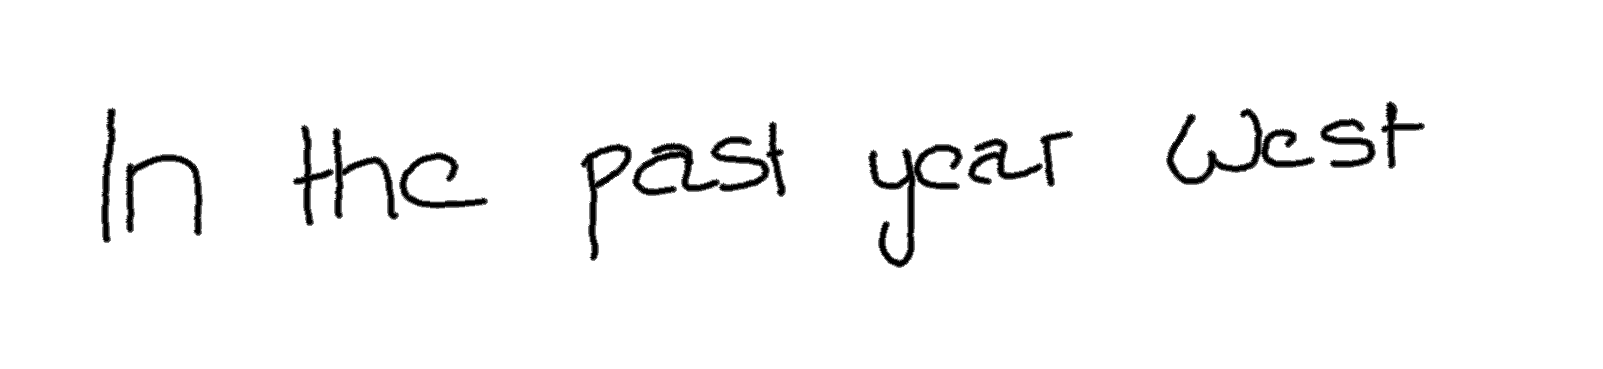 In the past year West